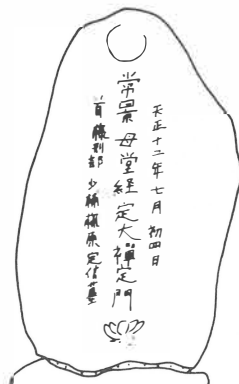 天正十二年七月初四日
常景母堂経定大禅定門
首藤刑部少輔藤原定信墓